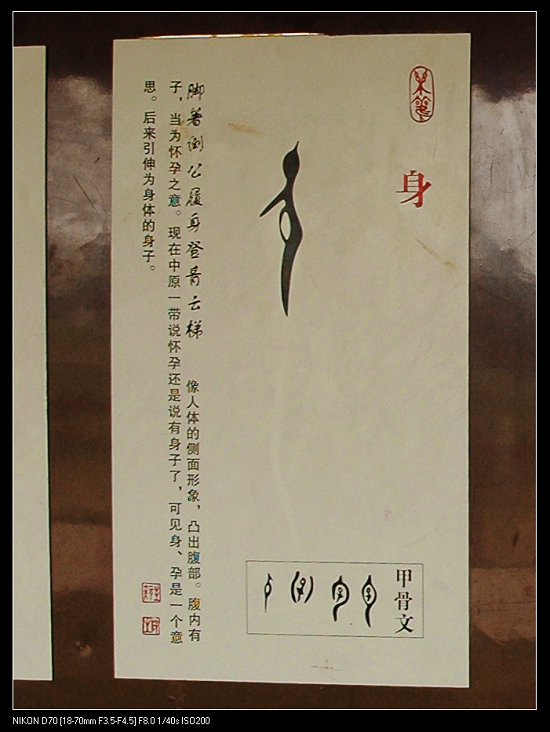 身
甲骨文
脚著谢公屐身登青云梯 像人体的侧面形象，凸出腹部。腹内有
子，当为怀孕之意。现在中原一带说怀孕还是说有身子了，可见身、孕是一个意
思。后来引伸为身体的身子。
NIKON D70 [18-70mm F3.5-F4.5] F8.0 1/40s ISO200